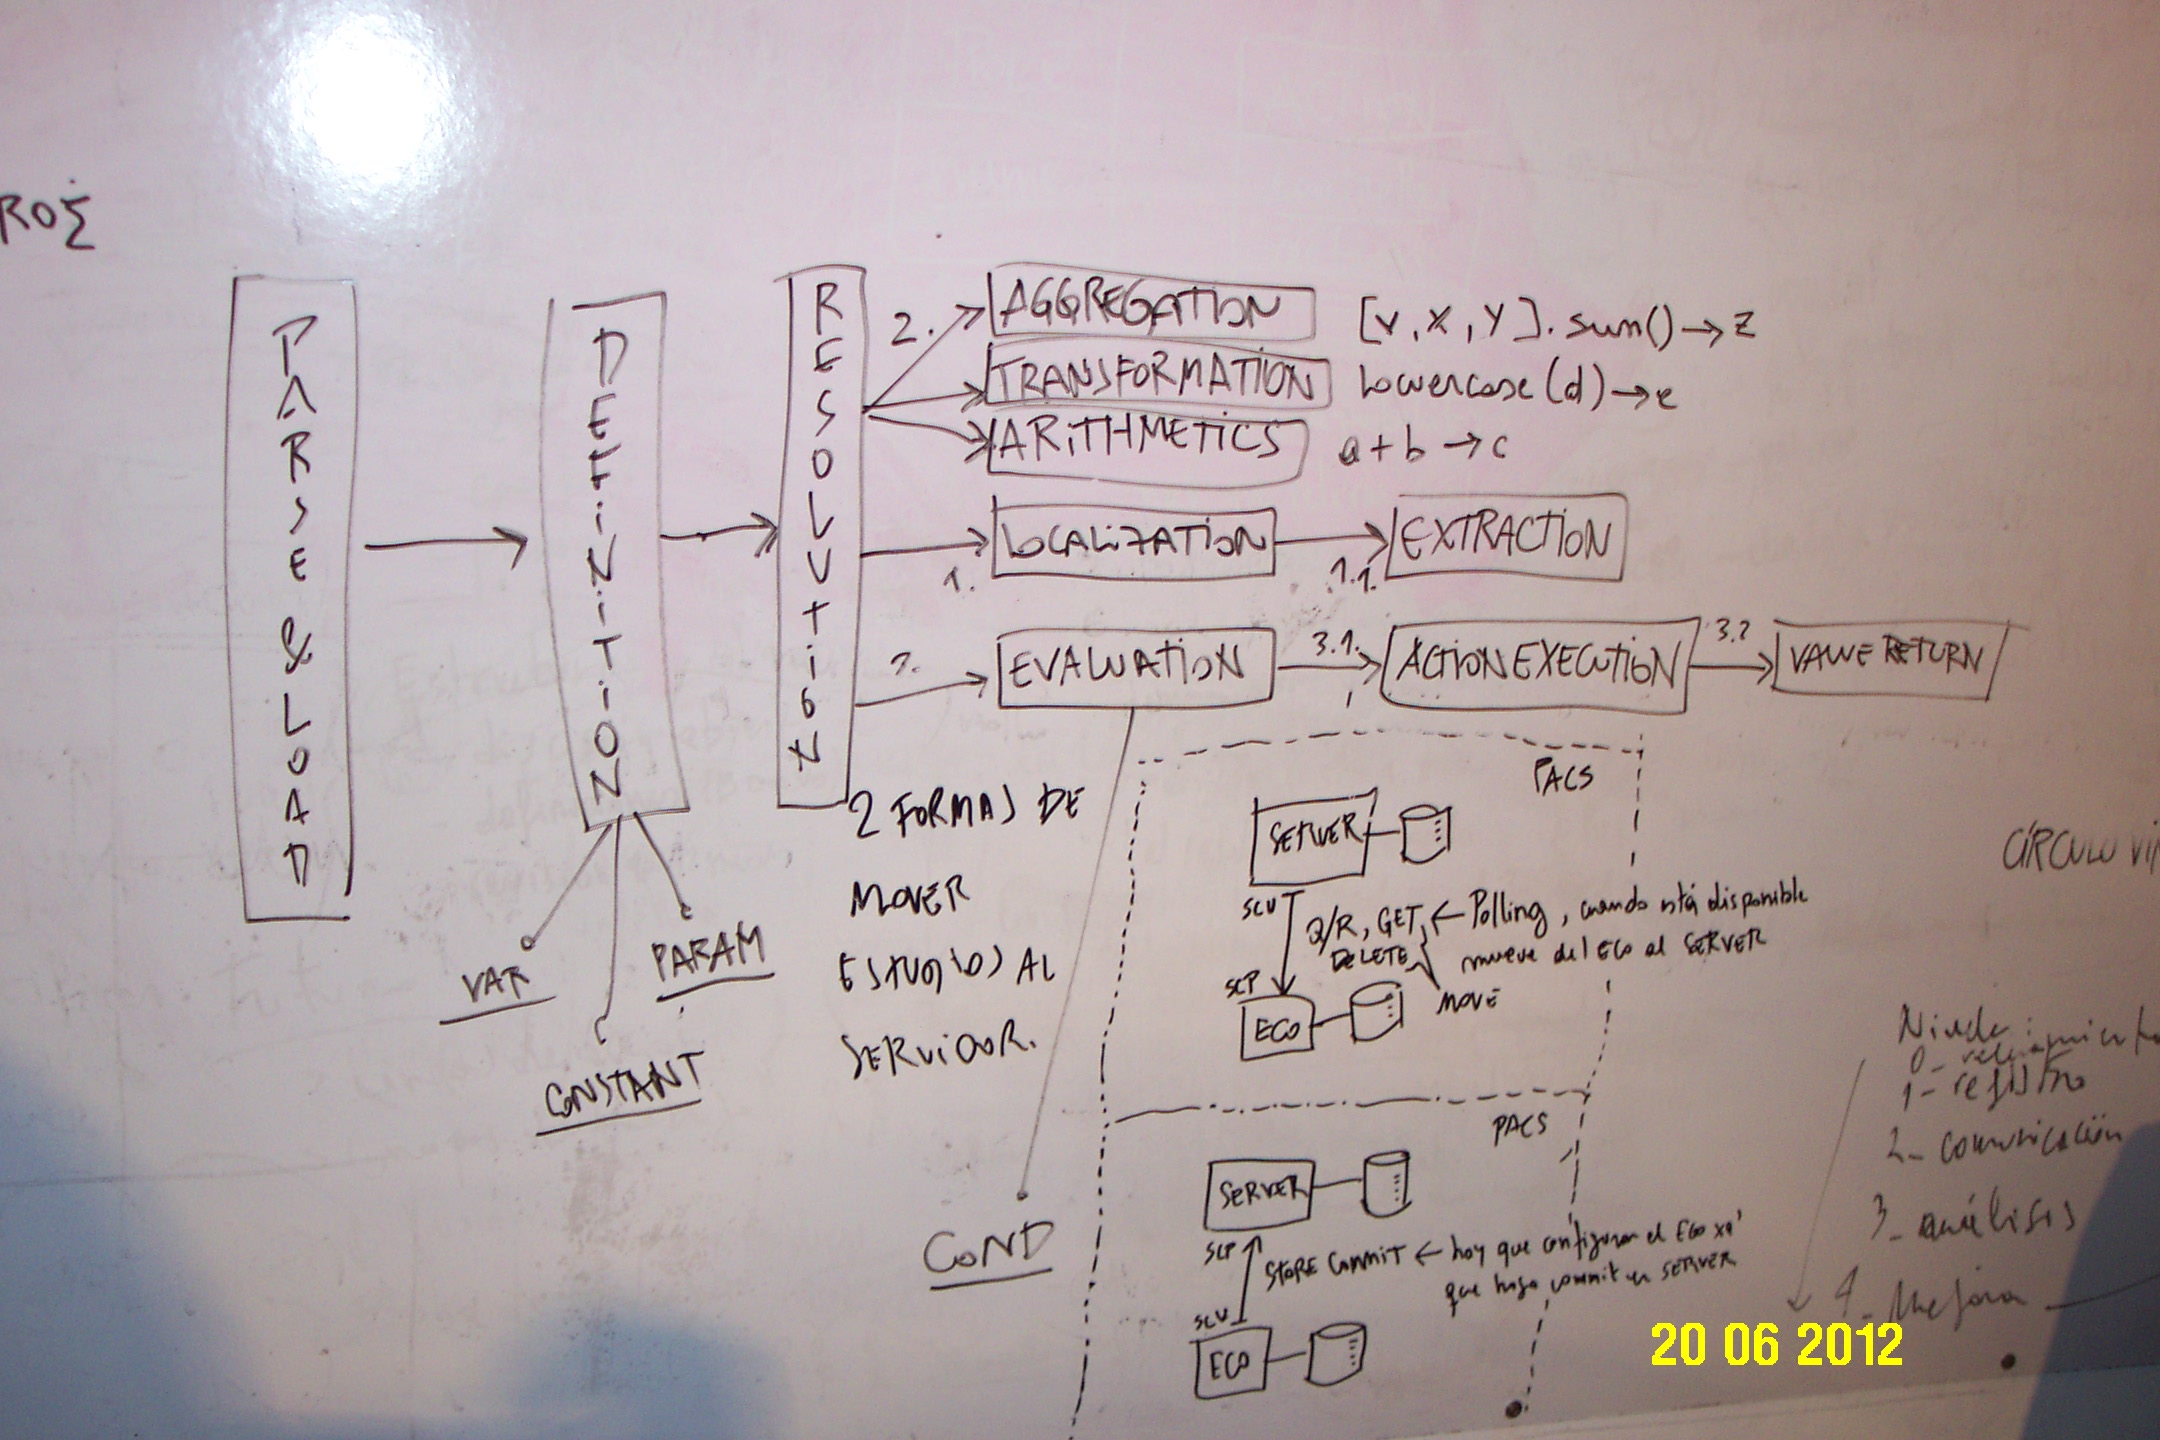 ROΣ
PARSE & LOAD
DEFINITION
RESOLUTION
2.
AGGREGATION
[v, x, y].sum() → z
TRANSFORMATION
lowercase(d) → e
ARITHMETICS
a + b → c
1.
LOCALIZATION
1.1.
EXTRACTION
EVALUATION
3.1.
ACTION EXECUTION
VALUE RETURN
VAR
CONSTANT
PARAM
COND
2 FORMAS DE
MOVER
ESTUDIOS AL
SERVIDOR.
PACS
SERVER
SCU
Q/R, GET, ← Polling, cuando está disponible
DELETE
mueve del ECO al SERVER
MOVE
SCP
ECO
PACS
SERVER
SCP
STORE COMMIT ← hay que configurar el ECO xa'
que haga commit en SERVER
SCU
ECO
CÍRCULO
1- registro
2- comunicación
3- análisis
4- Mejora
20 06 2012